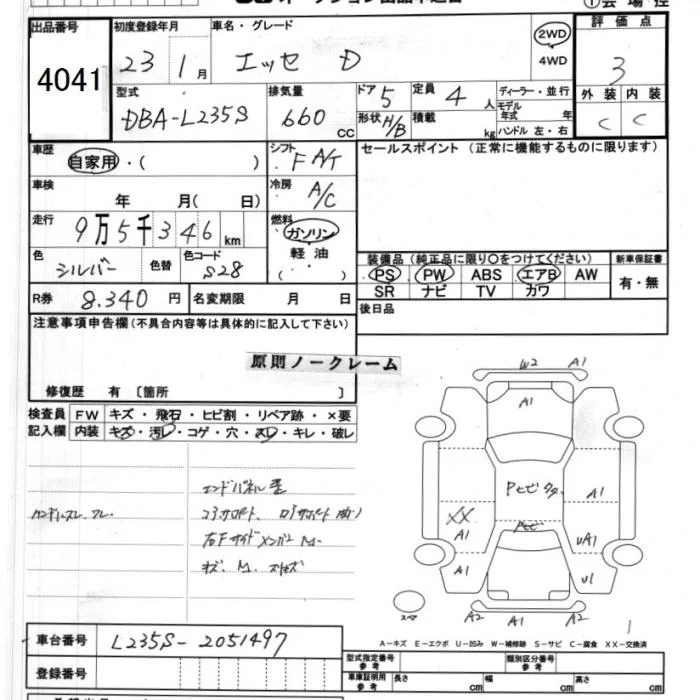 出品番号 初度登録年月 車名・グレード 評価点
4041 23 1月 エッセ D 2WD 4WD 3
型式 排気量 ドア 定員 ディーラー・並行 外装 内装
DBA-L235S 660 CC 5 4人 モデル年式 年 C C
形状 H/B 積載 kg ハンドル 左・右
車歴 自家用・( ) シフト F A/T セールスポイント (正常に機能するものに限ります)
車検 年 月( 日) 冷房 A/C
走行 9万5千346km 燃料 ガソリン
軽油
色 シルバー 色替 色コード S28 ( )
装備品 (純正品に限り○をつけてください) 新車保証書
PS PW ABS エアB AW 有・無
SR ナビ TV カワ
R券 8.340円 名変期限 月 日 後日品
注意事項申告欄(不具合内容等は具体的に記入して下さい)
原則ノークレーム
修復歴 有 〔箇所 〕
検査員 FW キズ・飛石・ヒビ割・リペア跡・×要
記入欄 内装 キズ・汚レ・コゲ・穴・スレ・キレ・破レ
W2 A1
A1
エンドパネル
PヒビタタA1
XX
A1 Pヒビ UA1
A1 U1
スペア
A2 A1 A2
車台番号 L235S-2051497
A-キズ E-エクボ U-凹み W-補修跡 S-サビ C-腐食 XX-交換済
登録番号
型式指定番号 参考 類別区分番号 参考
車庫証明用 参考 長さ cm 幅 cm 高さ cm